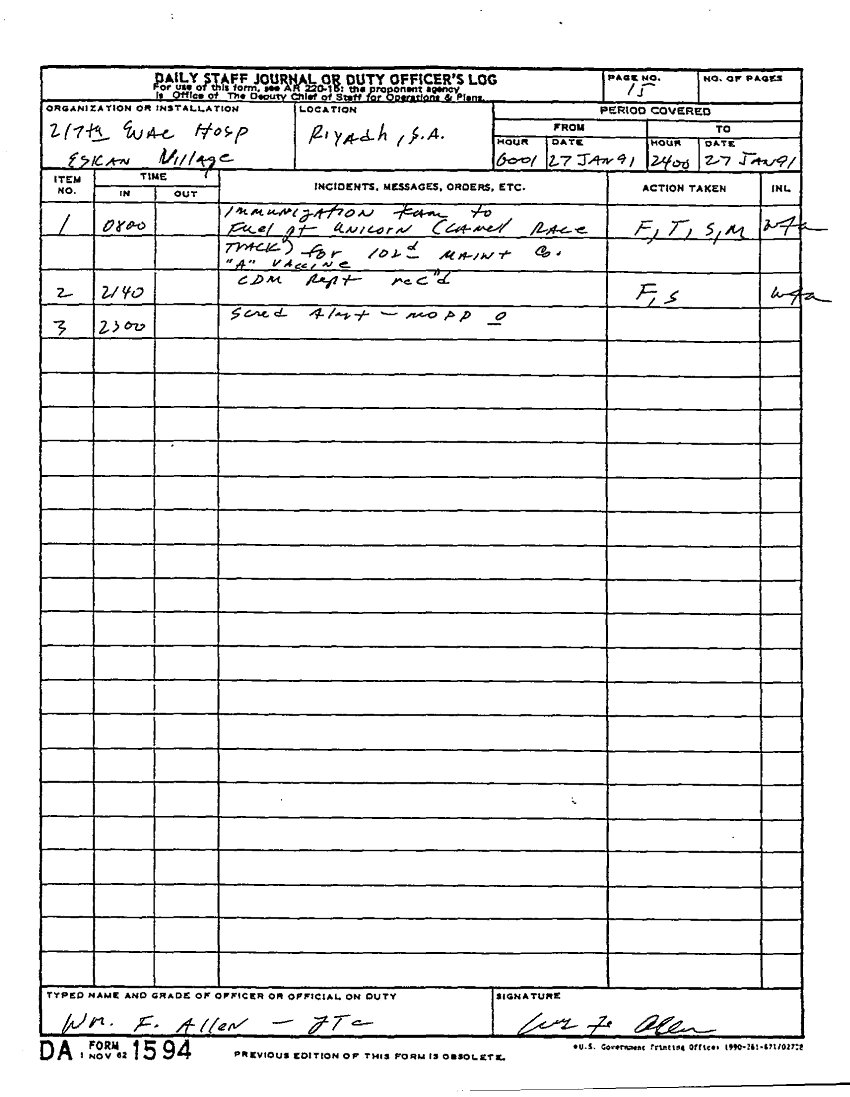 DAILY STAFF JOURNAL OR DUTY OFFICER'S LOG
For use of this form, see AR 220-15; the proponent agency
is Office of The Deputy Chief of Staff for Operations & Plans.
PAGE NO.
15
NO. OF PAGES
ORGANIZATION OR INSTALLATION
217th Evac Hosp
ESKAN Village
LOCATION
Riyadh, S.A.
PERIOD COVERED
FROM
TO
HOUR
DATE
HOUR
DATE
0001
27 JAN 91
2400
27 JAN 91
ITEM NO.
TIME
IN
OUT
INCIDENTS, MESSAGES, ORDERS, ETC.
ACTION TAKEN
INL
1
0800
IMMUNIZATION team to
Fuel pt UNICORN (CAMEL RACE
TRACK) for 102d MAINT Co.
"A" VACCINE
F, T, S, M
wfa
2
2140
CDM Rept rec'd
F, S
wfa
3
2300
Scud Alert - MOPP 0
TYPED NAME AND GRADE OF OFFICER OR OFFICIAL ON DUTY
Wm. F. Allen -
SIGNATURE
Wm F. Allen
DA FORM 1594
1 NOV 62
PREVIOUS EDITION OF THIS FORM IS OBSOLETE.
*U.S. Government Printing Office: 1990-261-871/02728